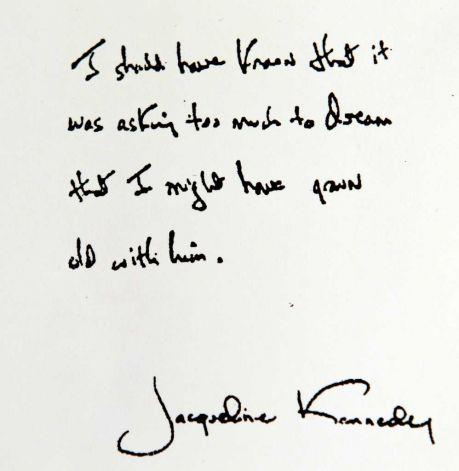 I should have known that it
was asking too much to dream
that I might have grown
old with him.
Jacqueline Kennedy